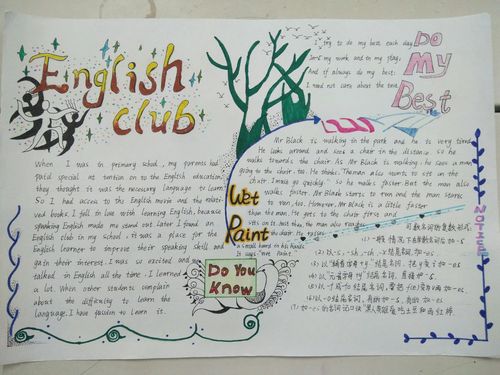 English
club
When I was in primary school, my parents had
paid special at tention on to the English education
they thought it was the necessary language to learn.
So I had access to the English movie and the relati-
ved books. I fell in love with learning English, because
speaking English made me stand out. Later I found an
English club in my school, it was a place for the
English learner to improve their speaking skill and
gain their interest. I was so excited and
talked in English all the time. I learned
a lot. When other students complain
about the difficulty to learn the
language, I have passion to learn it.
Do My Best
I try to do my best each day
In my work and in my play,
And if always do my best:
I need not care about the
Wet Paint
Mr Black is walking in the park and he is very tired
He looks around and sees a chair in the distance so he
walks towards the chair. As Mr Black is walking, he sees a man
going to the chair, too. He thinks, That man also wants to sit on the
chair. I must go quickly." so he walks faster. But the man also
walks faster. Mr Black starts to run and the man starts
to run, too. However, Mr Black is a little faster
than the man. He gets to the chair first and
sits on it. Just then, the man also
the chair. He
a small board in his hands.
It says "Wet Paint"
Do You Know
NOTES
可数名词的复数形式:
(1)一般情况下在单数名词后加-s
(2)以-s, -sh, -ch, -x结尾名词, 加-es
(3)以"辅音字母+y"结尾名词, 把y变i加-es
(4)以"元音字母+y"结尾名词, 直接加-s
(5)以-f或-fe结尾名词, 要把f或fe变为v再加-es
(6)以-o结尾名词, 有的加-s, 有的加-es
(7)加-es的名词记口诀"黑人英雄爱吃土豆和西红柿